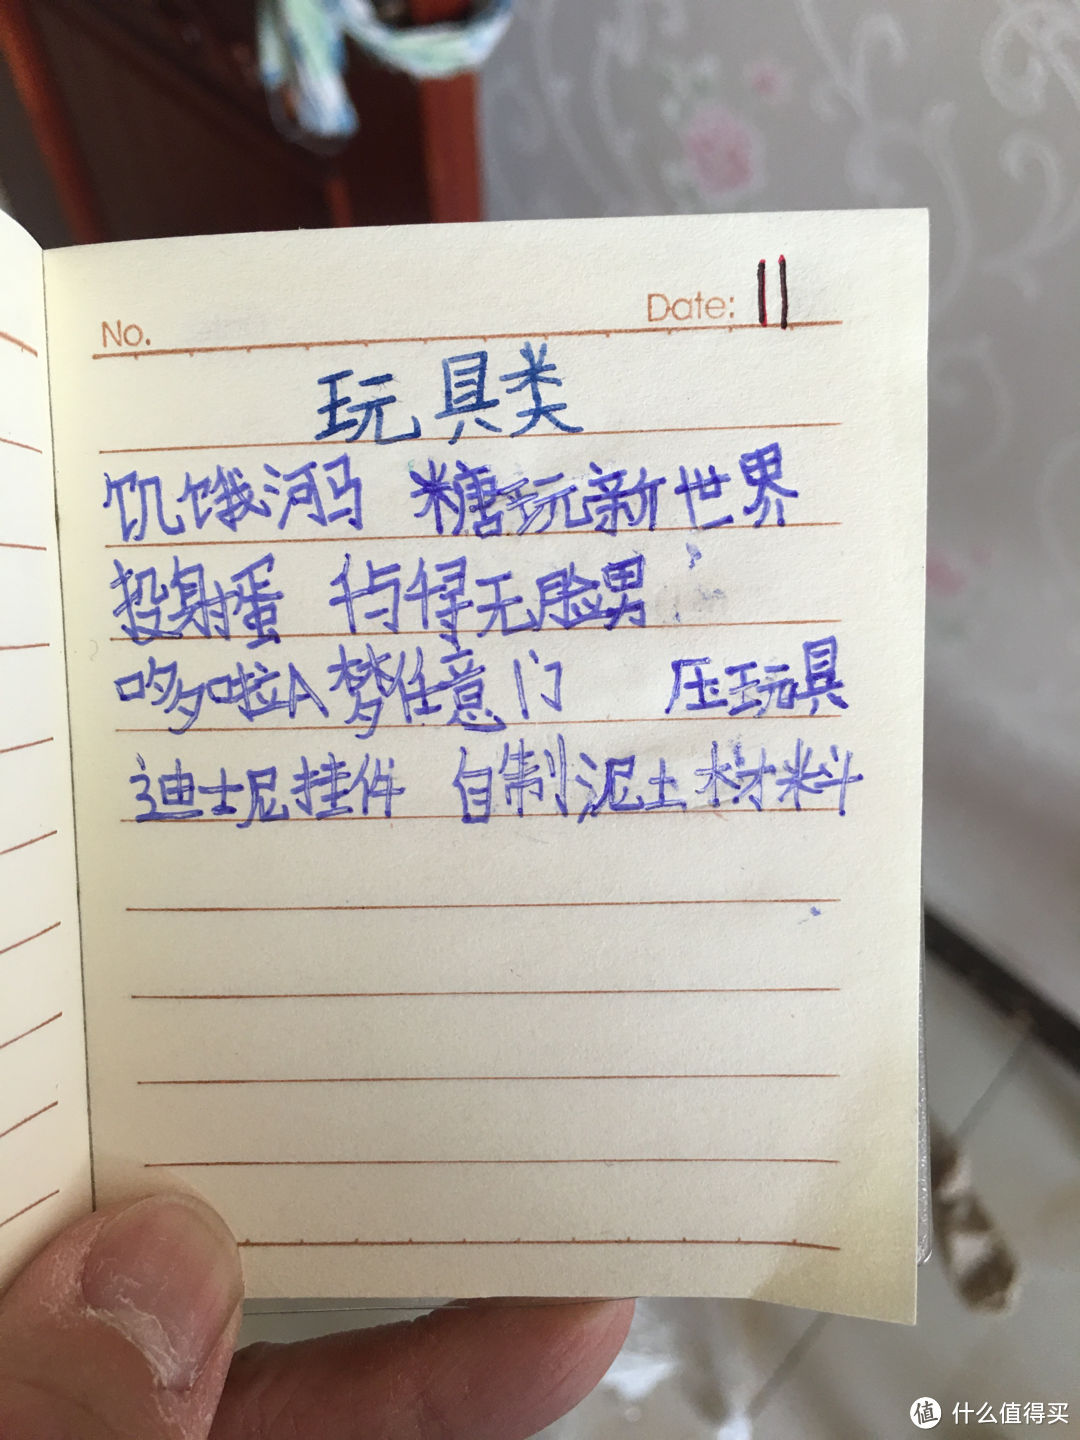 No. Date: 11
玩具类
饥饿河马 糖玩新世界
投射蛋 千与千寻无脸男
哆啦A梦任意门 压玩具
迪士尼挂件 自制泥土材料
值 什么值得买